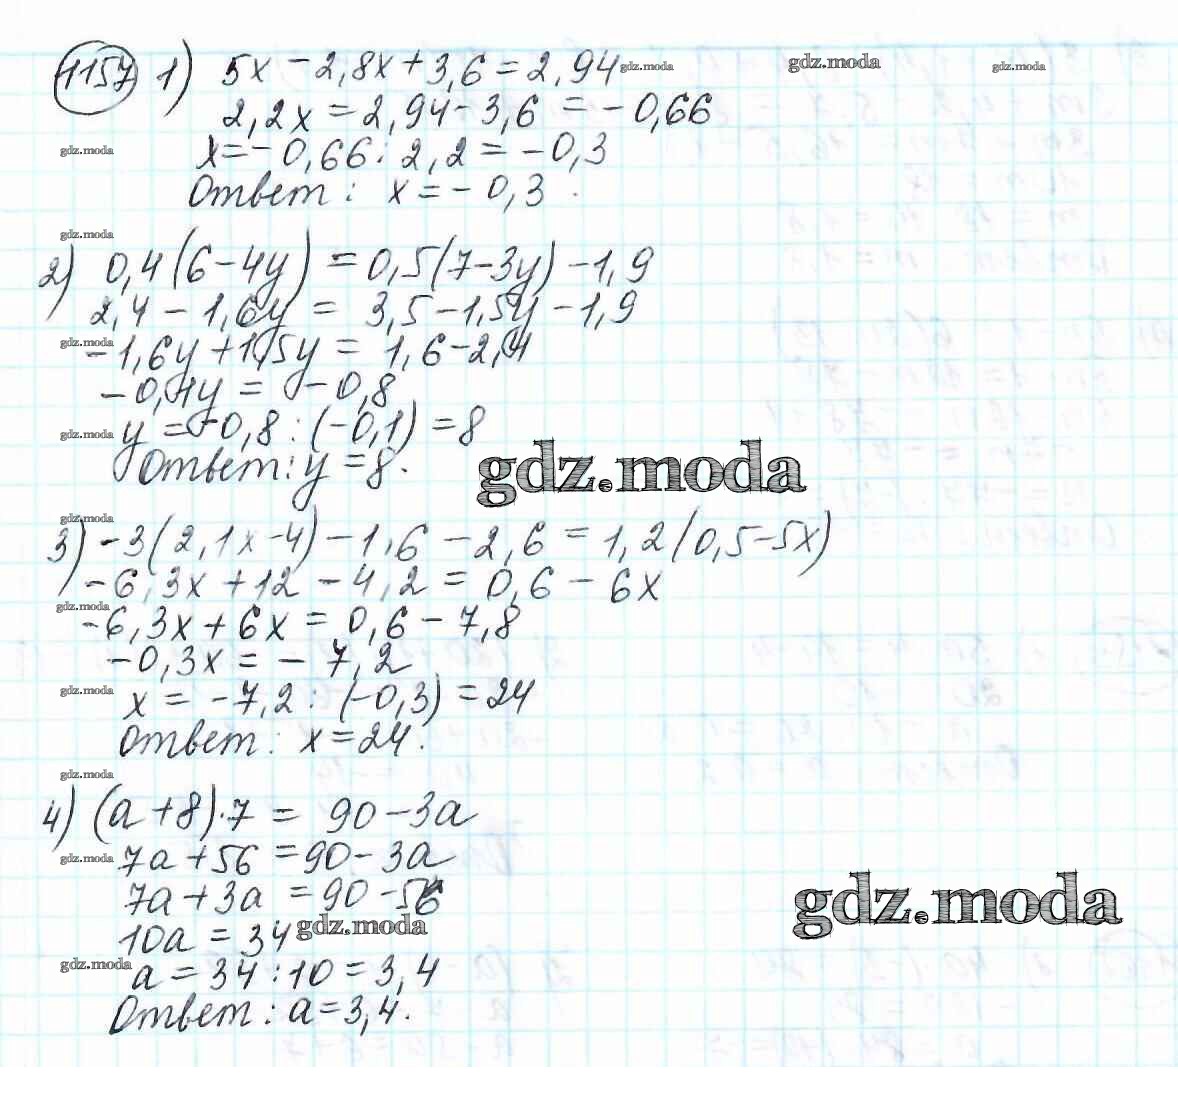 1157 1) 5x - 2,8x + 3,6 = 2,94 gdz.moda gdz.moda gdz.moda
2,2x = 2,94 - 3,6 = - 0,66
gdz.moda x = - 0,66 : 2,2 = - 0,3
Ответ : x = - 0,3 .
gdz.moda
2) 0,4 (6 - 4y) = 0,5 (7 - 3y) - 1,9
2,4 - 1,6y = 3,5 - 1,5y - 1,9
gdz.moda - 1,6y + 1,5y = 1,6 - 2,4
- 0,1y = - 0,8
gdz.moda y = - 0,8 : (- 0,1) = 8
Ответ : y = 8.
gdz.moda
gdz.moda
3) - 3 (2,1x - 4) - 1,6 - 2,6 = 1,2 (0,5 - 5x)
- 6,3x + 12 - 4,2 = 0,6 - 6x
gdz.moda
- 6,3x + 6x = 0,6 - 7,8
- 0,3x = - 7,2
gdz.moda x = - 7,2 : (- 0,3) = 24
Ответ : x = 24.
gdz.moda
4) (a + 8) · 7 = 90 - 3a
gdz.moda 7a + 56 = 90 - 3a
7a + 3a = 90 - 56
gdz.moda
10a = 34 gdz.moda
gdz.moda a = 34 : 10 = 3,4
Ответ : a = 3,4.